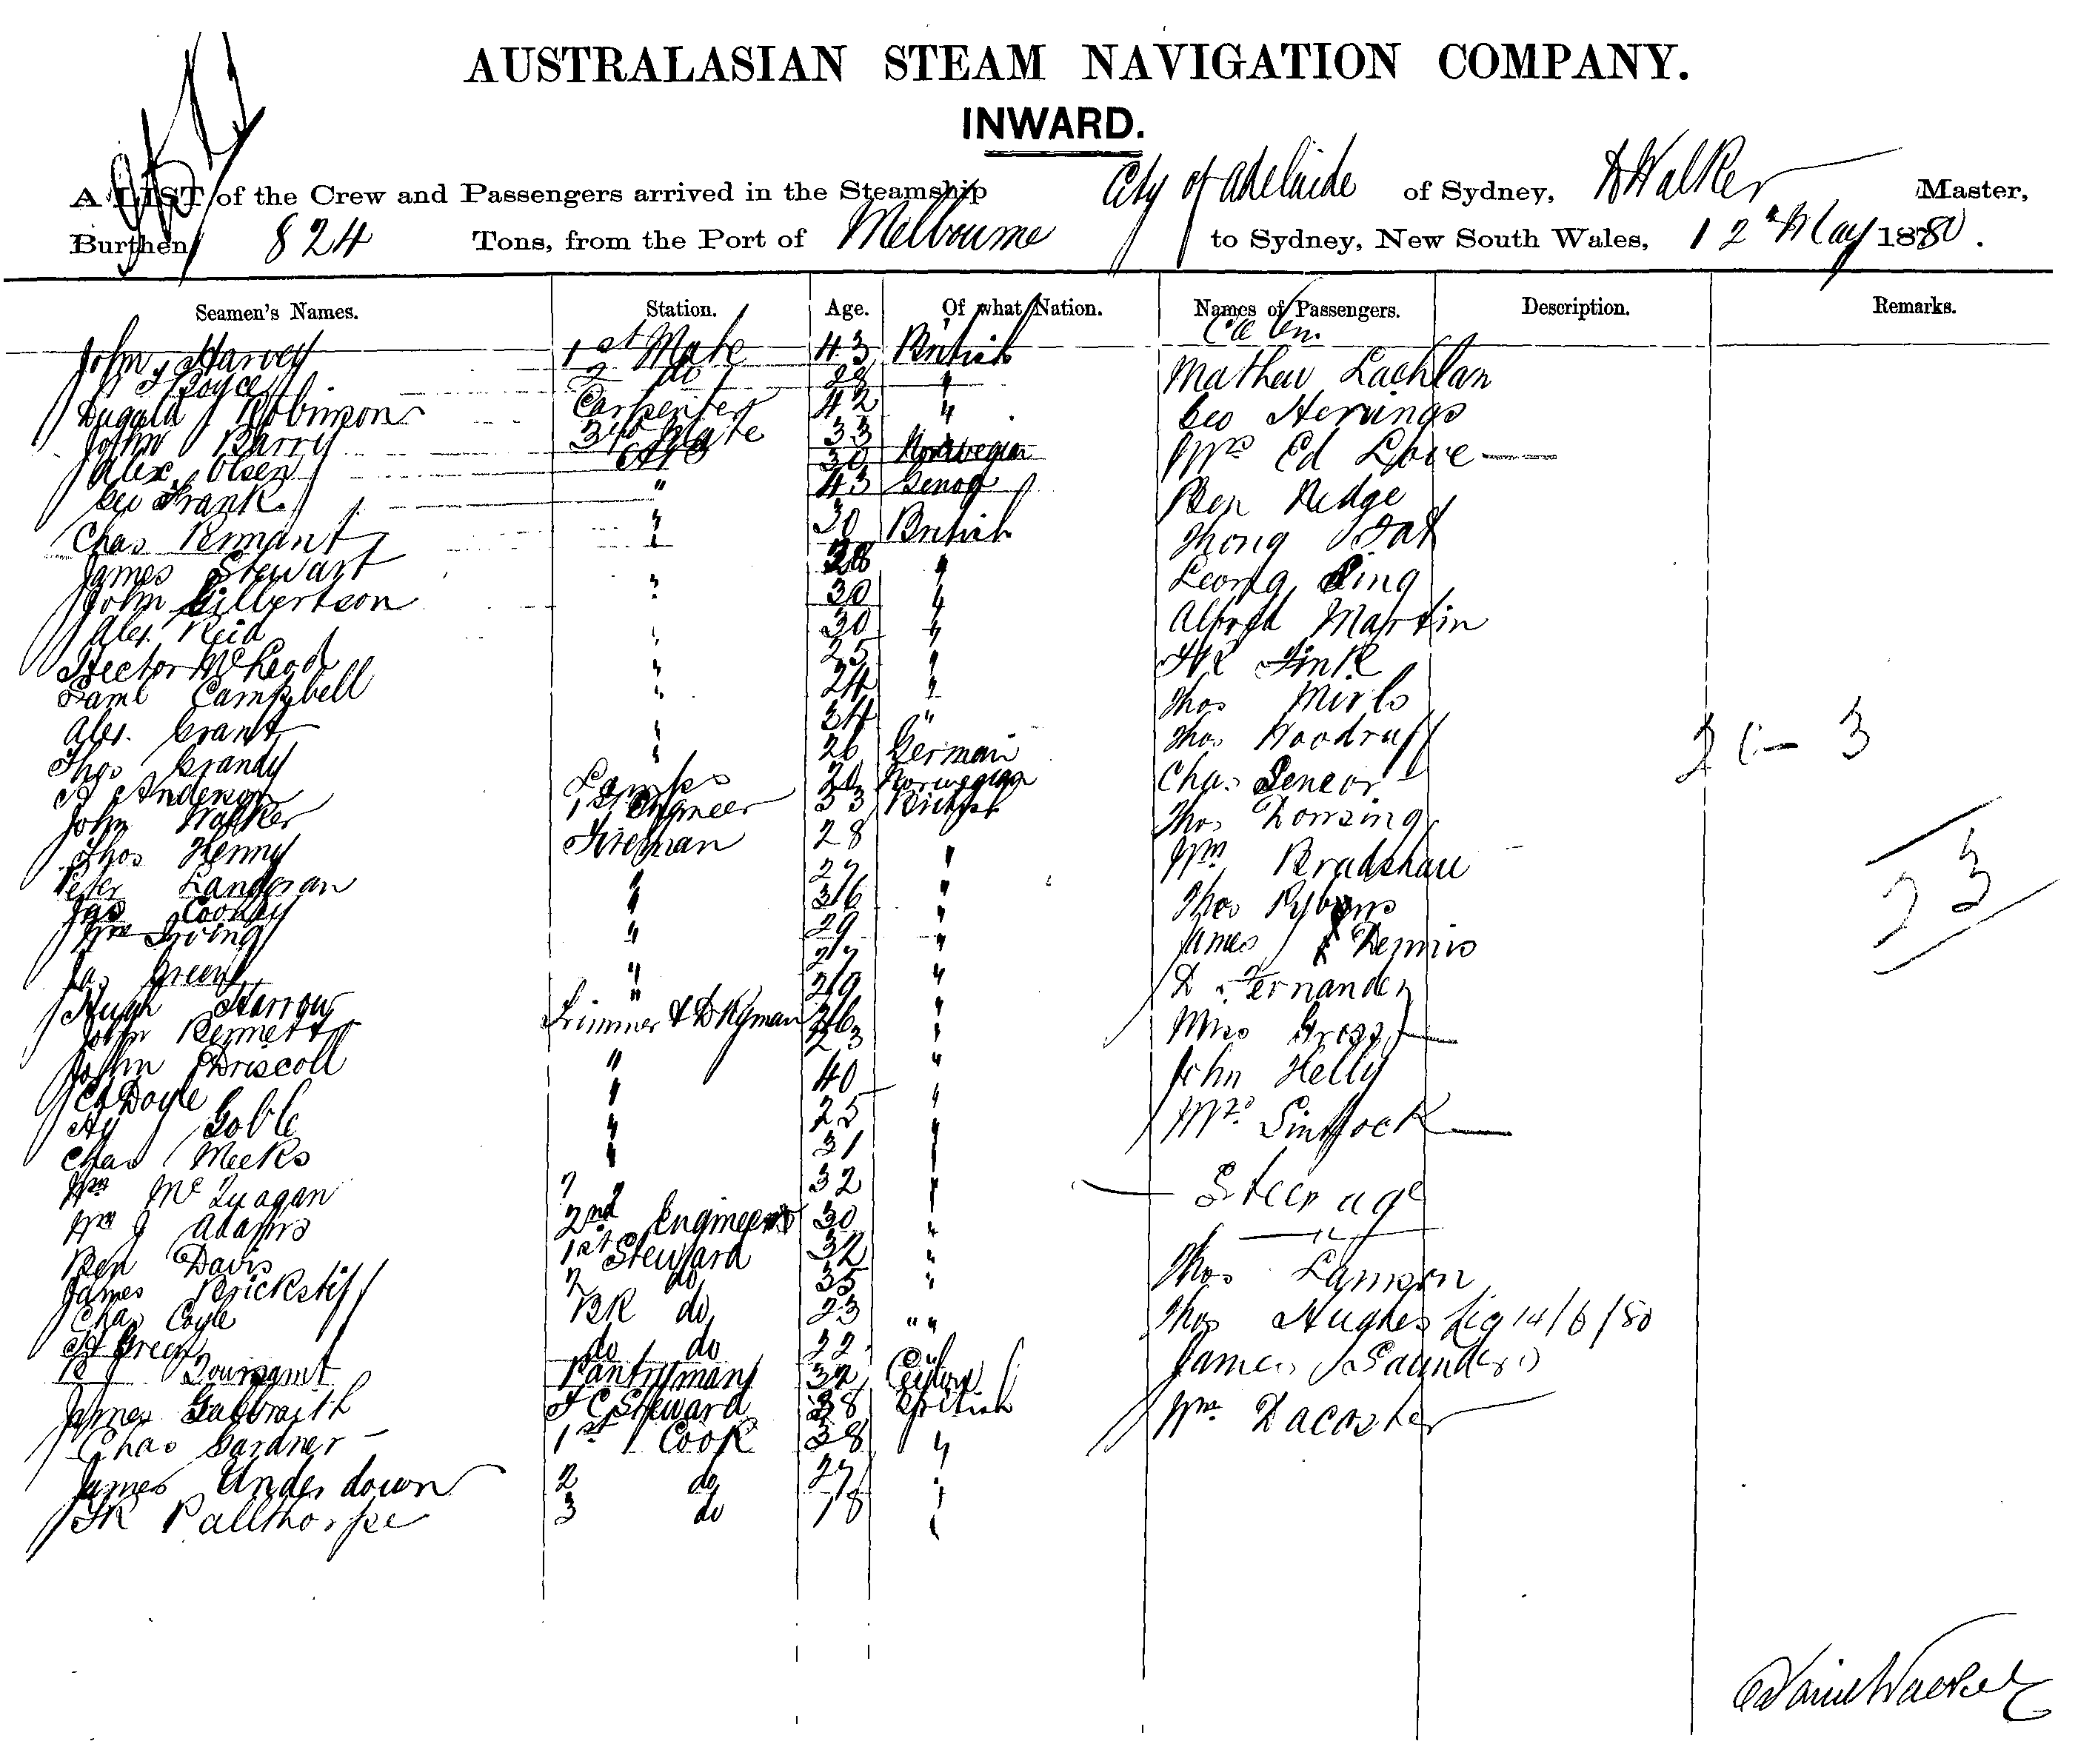 AUSTRALASIAN STEAM NAVIGATION COMPANY.
INWARD.
A LIST of the Crew and Passengers arrived in the Steamship City of Adelaide of Sydney, D Walker Master,
Burthen 824 Tons, from the Port of Melbourne to Sydney, New South Wales, 12th May 1880.
Seamen's Names. Station. Age. Of what Nation. Names of Passengers. Description. Remarks.
Cabin.
John Harvey 1st Mate 43 British Mathew Lachlan
Royce 2 do 28 " Geo Hennings
Dugald Robinson Carpenter 42 " Mrs Ed Love
John Barry 3rd Mate 33 Ben Ridge
Alex Olsen AB 30 Norwegian Thong Fat
Geo Frank " 43 Genoa Leong Sing
Chas Pennant " 30 British Alfred Martin
James Stewart " 28 " Fink
John Gilbertson " 30 " Thos Mirls
Alex. Reid 30 " Thos Woodruff
Hector McLeod " 25 " Chas Seneor
Saml Campbell " 24 " Thos Dowsing
Alex. Grant " 34 " Wm Bradshaw
Thos Grandy " 26 German Thos
A Anderson Lamps Norwegian James Dennis
John Walker 1st Engineer 33 British D Fernandez
Thos Henny Fireman 28 " Miss Gross
Peter Landgran " 27 " John Kelly
Jas Cooney " 36 " Mrs
Wm Irving " 29 "
Jas Green " 27 " Steerage
Hugh Harrow " 29 "
John Bennett Trimmer & Dkyman 26 " Thos Lamson
John Driscoll " 23 " Thos Hughes Lig 14/6/80
C Doyle " 40 " James Saunders
Hy Goble " 25 " Wm Dacoster
Chas Meeks " 31 "
Wm McQuagan 32 "
Wm J Adams 2nd Engineer 30 "
Ben Davis 1st Steward 32 "
James Brickstiff 2 do 35 "
Chas Coyle BR do 23 " "
H Green do do 22
Toussamt Pantryman 32 Ceylon
James Galbraith F C Steward 38 British
Chas Gardner 1st Cook 38 "
James Underdown 2 do 27 "
FR Pallthorpe 3 do 18 "
20 - 3
23
David Walker